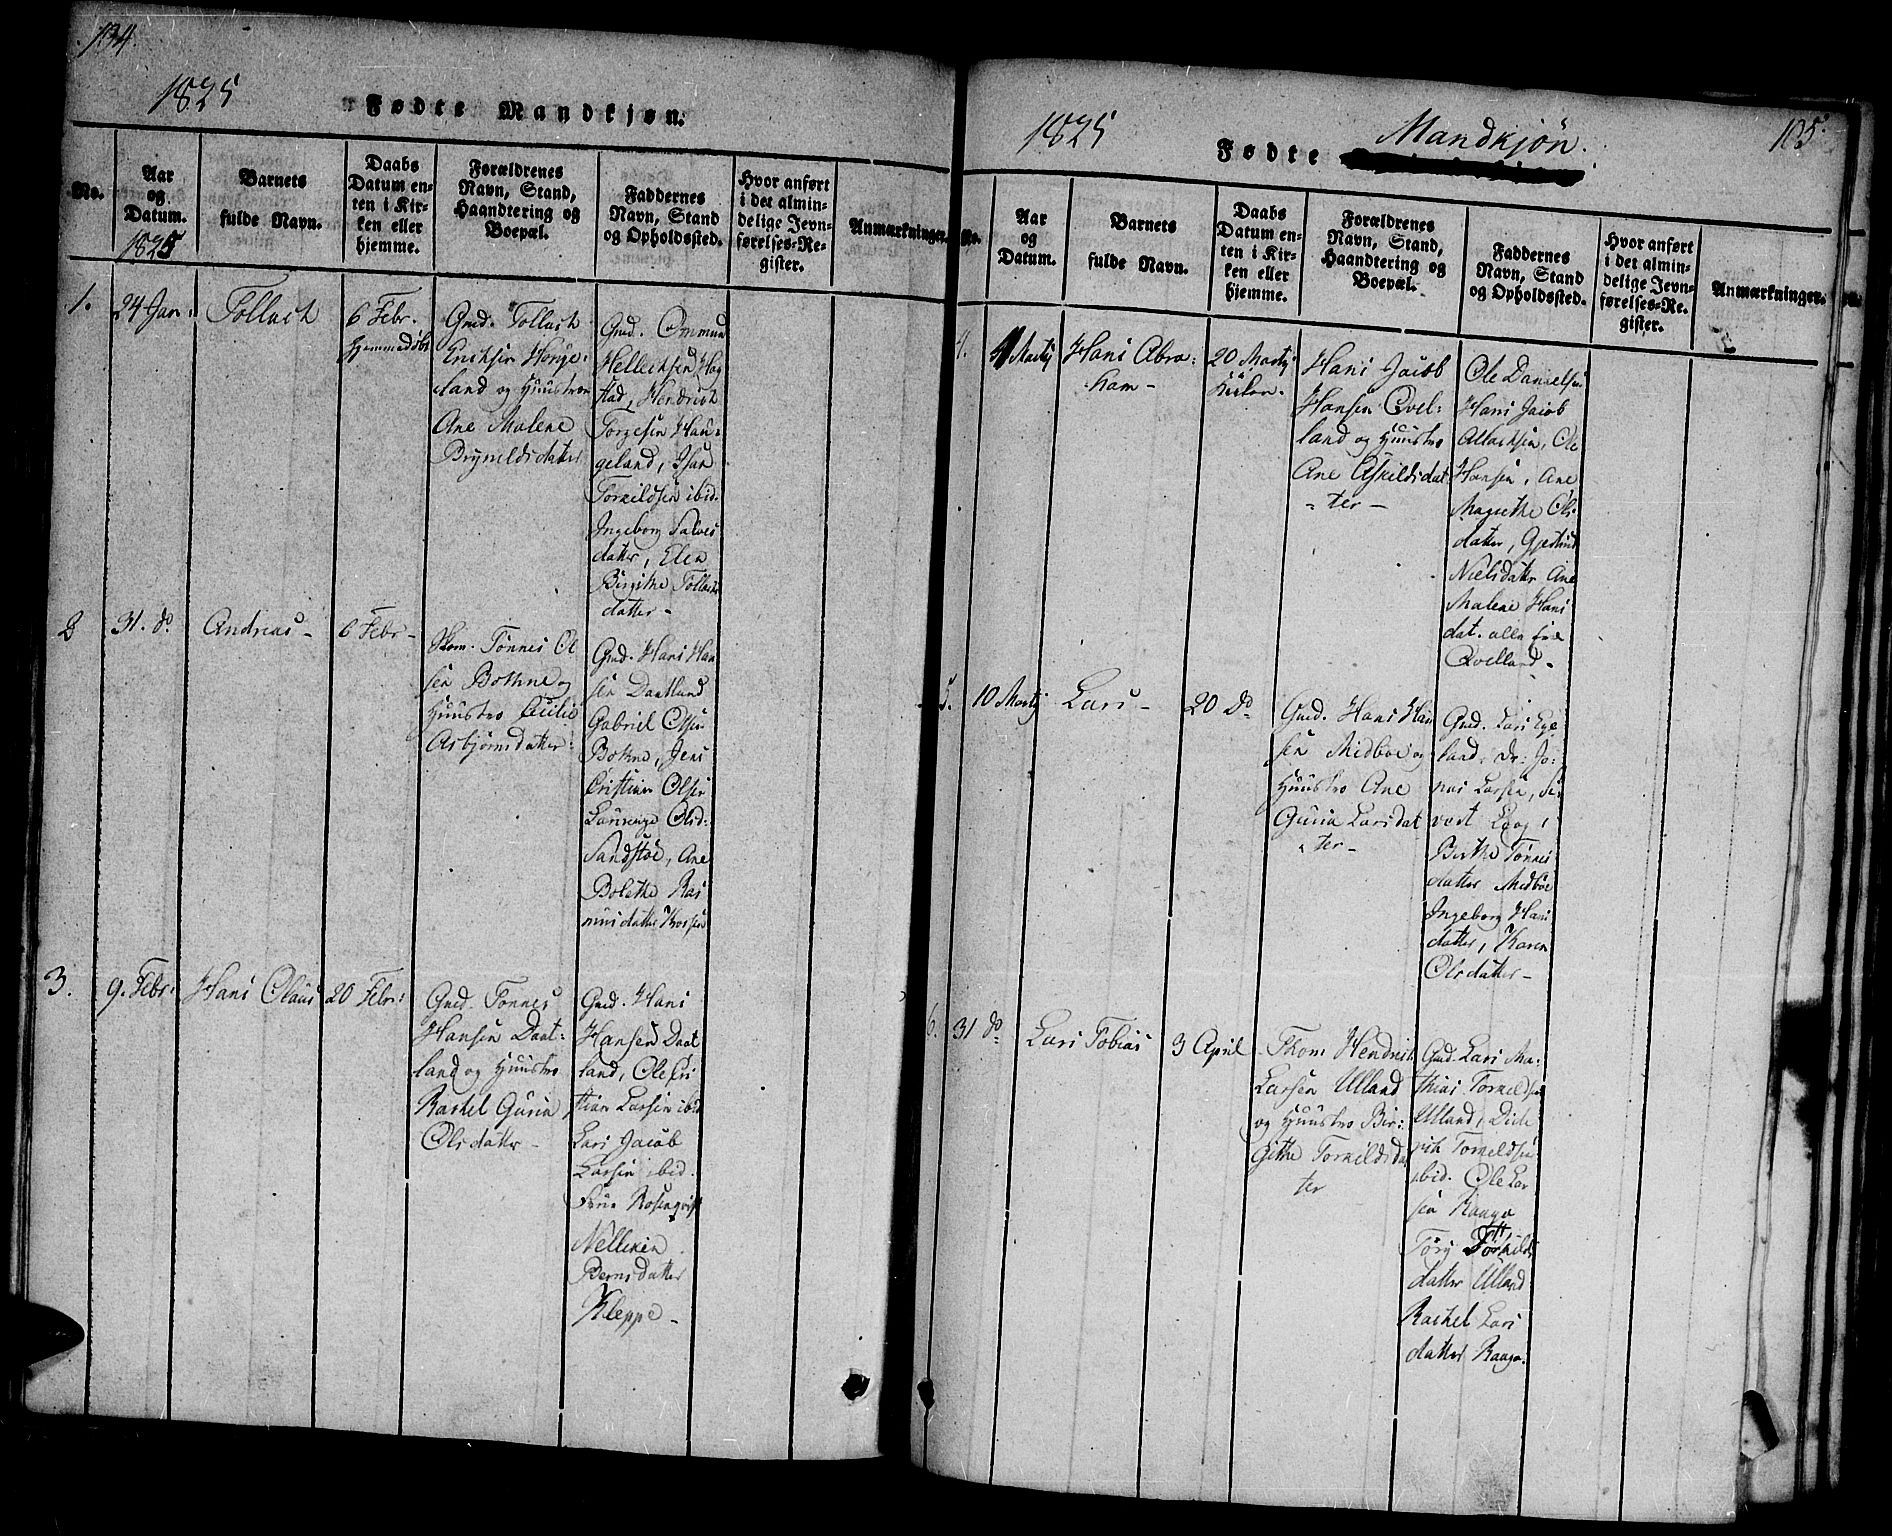 134.
1825
Fødte Mandkjøn.
No.
Aar
og
Datum.
1825
Barnets
fulde Navn.
Daabs
Datum en-
ten i Kir-
ken eller
hjemme.
Forældrenes
Navn, Stand,
Haandtering og
Boepæl.
Faddernes
Navn, Stand
og Opholdssted.
Hvor anført
i det almin-
delige Jevn-
førelses-Re-
gister.
Anmærkninger.
1.
24 Jan:
Tollach
6 Febr.
Hjemmedøbt
Gmd. Tollach
Erichsen Houge:
land og Huustroe
Ane Malene
Bryneldsdatter
Gmd. Ommun
Hellechsen
Hendrich
Torgesen Hau:
geland, Isac
Torkildsen ibid.
Ingeborg Salves
datter, Elen
Birgithe Tollachs
datter -
2
31. do
Andreas -
6 Febr -
Tønnes Ol
sen Bothne og
Huustro Cecilie
Asbjørnsdatter:
Gmd. Hans Han
sen Daatland
Gabriel Olsen
Bothne, Jens
Cristian Olsen
Laurenze Olsd:
Sandstøe, Ane
Bolethe Ras
musdatter
3.
9. Febr:
Hans Olaus
20 Febr:
Gmd. Tønnes
Hansen Daat:
land og Huustro
Rachel Guria
Olsdatter -
Gmd. Hans
Hansen Daat
land, Ole Cri
stian Larsen ibid
Lars Jacob
Larsen ibid.
Frue Rosenqvist
Nelleken
Berns datter
Kleppe -
135.
1825
Fødte Mandkjøn.
No.
Aar
og
Datum.
Barnets
fulde Navn.
Daabs
Datum en-
ten i Kir-
ken eller
hjemme.
Forældrenes
Navn, Stand,
Haandtering og
Boepæl.
Faddernes
Navn, Stand
og Opholdssted.
Hvor anført
i det almin-
delige Jevn-
førelses-Re-
gister.
Anmærkninger.
4.
Martj
Hans Abra:
ham -
20 Martj
Kirken.
Hans Jacob
Hansen Qvel:
land og Huustro
Ane Askildsdat
- ter -
Ole Danielsen
Hans Jacob
Allachsen, Ole
Hansen, Ane
Magrethe Ols
datter, Gjertrud
Nielsdatter Ane
Malene Hans
dat. alle fra
Qvelland -
5.
10 Martj
Lars -
20 do
Gmd. Hans Han
sen Midboe og
Huustro Ane
Guria Larsdat
- ter -
Gmd. Lars Ege
land, Dr: Jo:
nas Larsen, Si
vert Log,
Berthe Tønnes
datter Midboe
Ingeborg Hans
datter, Karen
Olsdatter -
6.
31 do
Lars Tobias
3 April
Hendrich
Larsen Ulland
og Huustro Bir:
githe Torkildsdat
ter
Gmd. Lars Ma:
thias Torkildsen
Ulland, Dide
rich Torkeldsen
ibid. Ole Lar
sen Raage
Torkilds
datter Ulland
Rachel Lars
datter Raage.